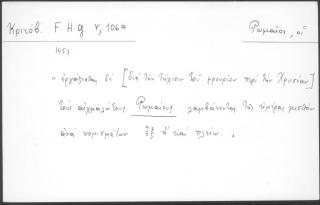 Κριτόβ. F H G. V, 106α Ρωμαῖος, οἱ
1453
" ἐργάζεσθαι δὲ [διὰ τὴν τείχισιν τοῦ φρουρίου περὶ τὴν Χρυσέαν]
τοὺς αἰχμαλώτους Ρωμαίους λαμβάνοντας τῆς ἡμέρας μισθὸν
ἀνὰ νομισμάτων ἓξ ἢ καὶ πλείω. "